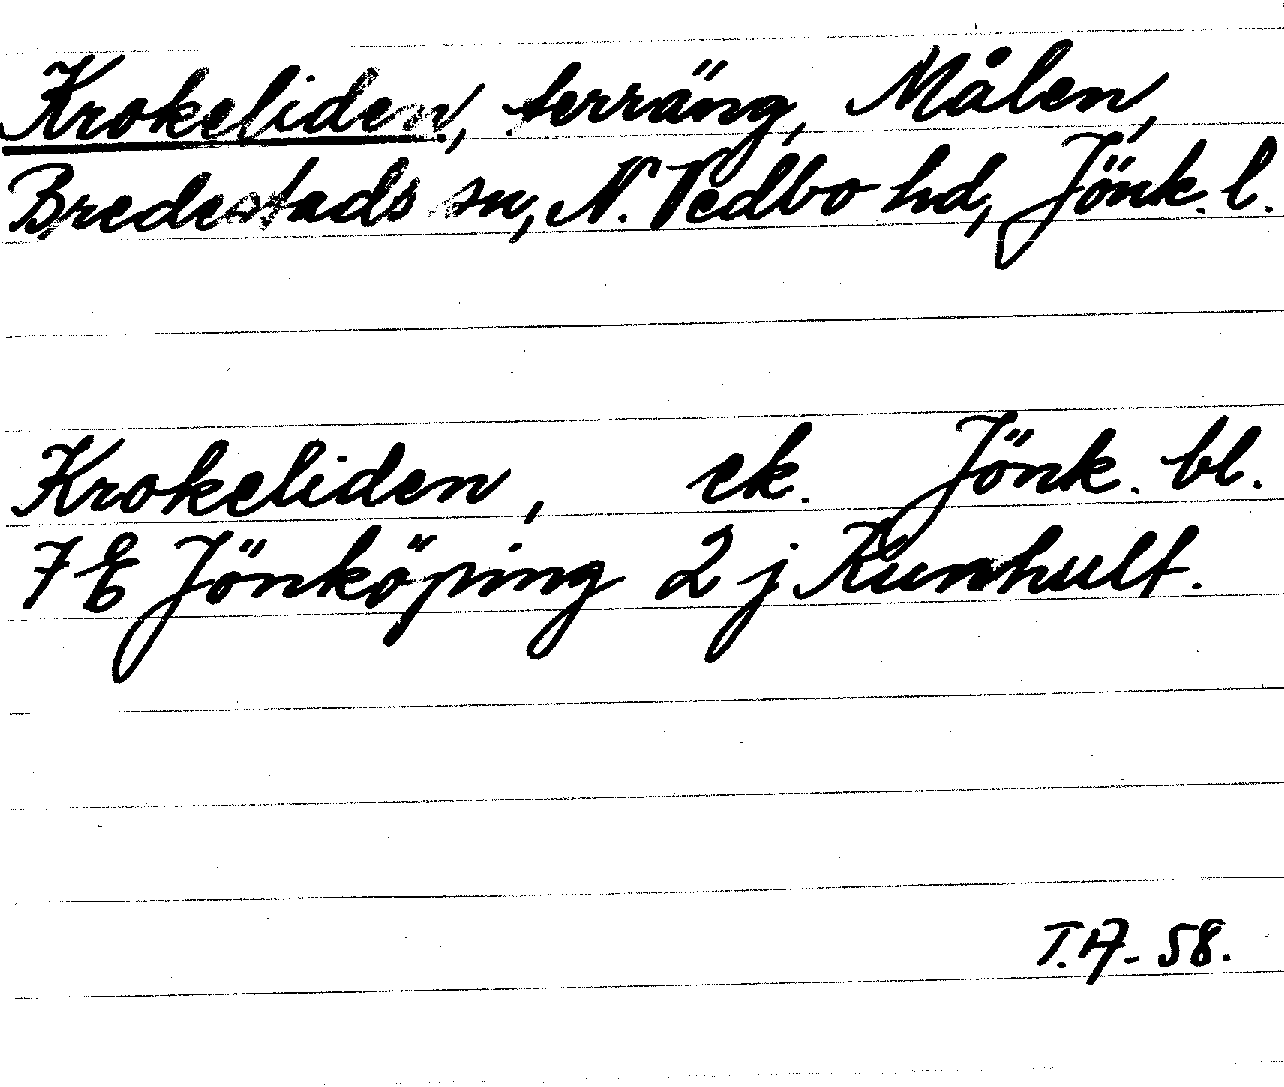 Krokeliden, terräng, Målen,
Bredestads sn, N. Vedbo hd, Jönk. l.
Krokeliden, ek. Jönk. bl.
7 E Jönköping 2 j Kumhult.
T.A-58.